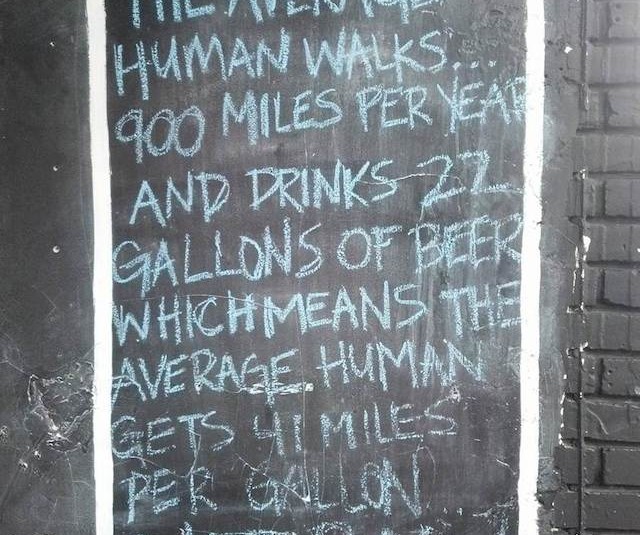 THE AVERAGE
HUMAN WALKS...
900 MILES PER YEAR
AND DRINKS 22
GALLONS OF BEER
WHICH MEANS THE
AVERAGE HUMAN
GETS 41 MILES
PER GALLON